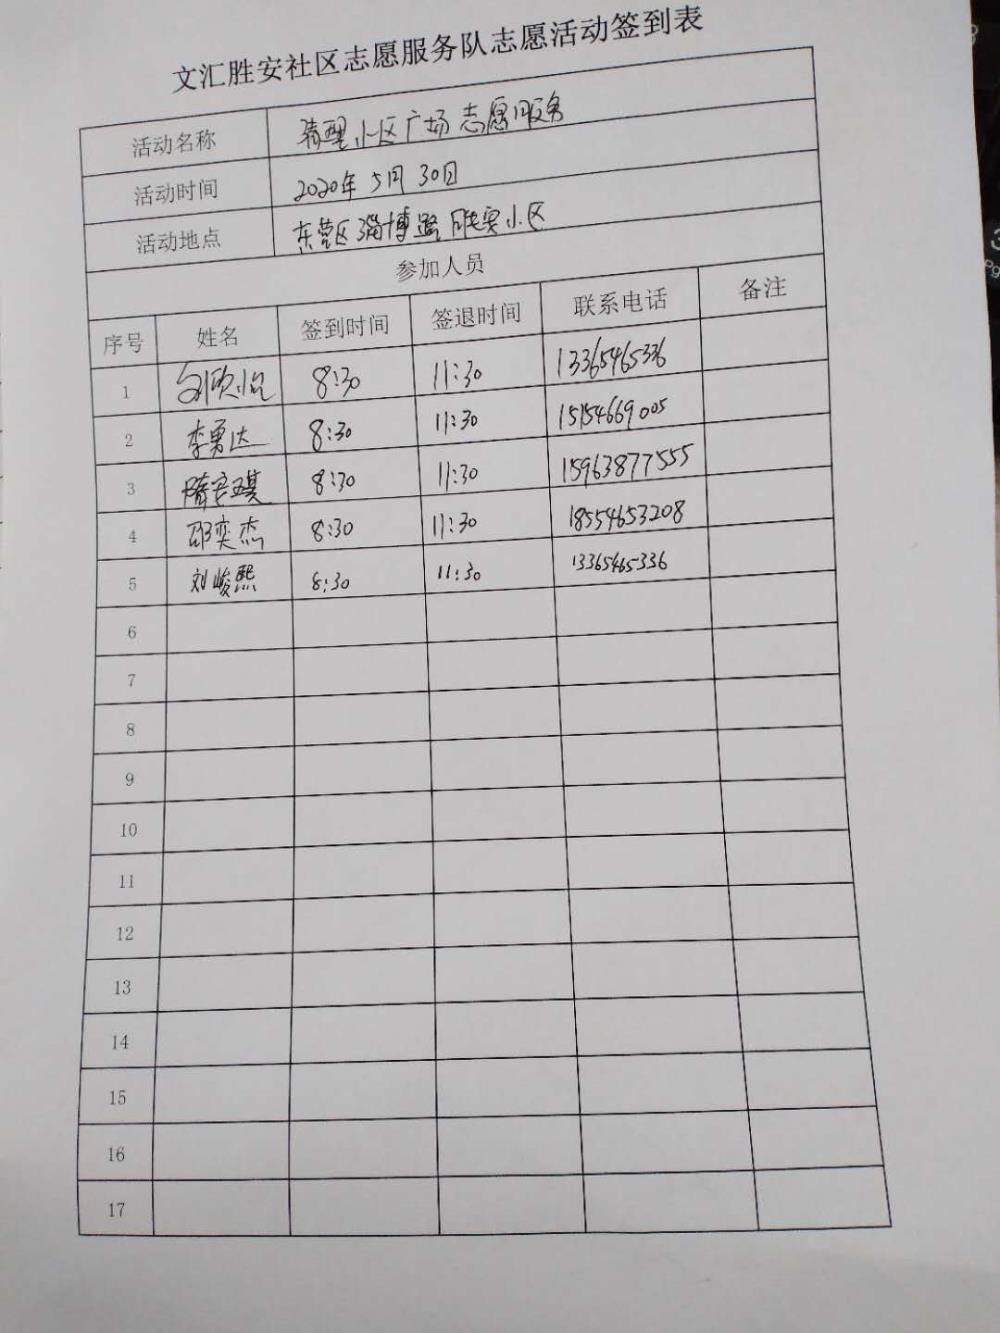 文汇胜安社区志愿服务队志愿活动签到表
活动名称 清理小区广场志愿服务
活动时间 2020年5月30日
活动地点 东营区淄博路胜安小区
参加人员
序号 姓名 签到时间 签退时间 联系电话 备注
1 8:30 11:30 13365465336
2 李勇达 8:30 11:30 15154669005
3 隋君琪 8:30 11:30 15963877555
4 邵奕杰 8:30 11:30 18554653208
5 刘峻熙 8:30 11:30 13365465336
6
7
8
9
10
11
12
13
14
15
16
17